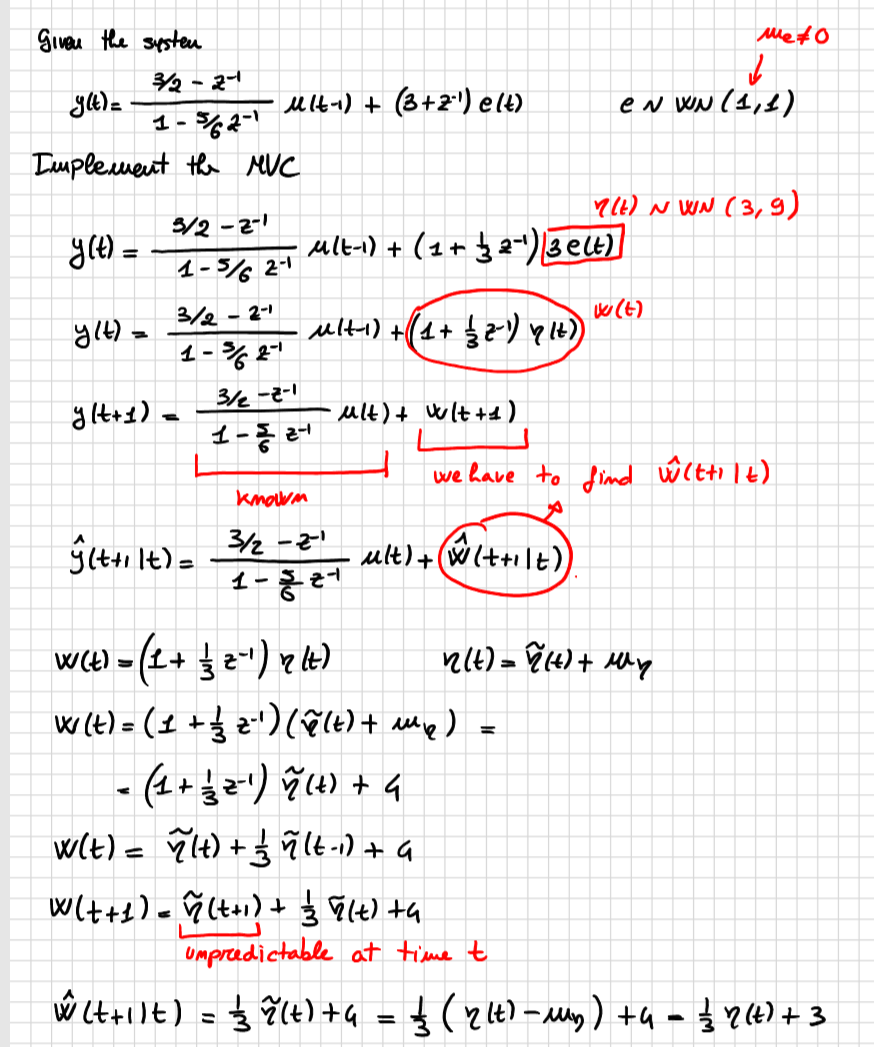 Given the system
m_e ≠ 0
y(t) = (3/2 - z^-1)/(1 - 5/6 z^-1) u(t-1) + (3 + z^-1) e(t)    e ~ WN(1,1)
Implement the MVC
η(t) ~ WN(3,9)
y(t) = (3/2 - z^-1)/(1 - 5/6 z^-1) u(t-1) + (1 + 1/3 z^-1) 3e(t)
y(t) = (3/2 - z^-1)/(1 - 5/6 z^-1) u(t-1) + (1 + 1/3 z^-1) η(t) w(t)
y(t+1) = (3/2 - z^-1)/(1 - 5/6 z^-1) u(t) + w(t+1)
known    we have to find ŵ(t+1|t)
ŷ(t+1|t) = (3/2 - z^-1)/(1 - 5/6 z^-1) u(t) + ŵ(t+1|t)
w(t) = (1 + 1/3 z^-1) η(t)    η(t) = η̃(t) + m_η
w(t) = (1 + 1/3 z^-1)(η̃(t) + m_η) =
= (1 + 1/3 z^-1) η̃(t) + 4
w(t) = η̃(t) + 1/3 η̃(t-1) + 4
w(t+1) = η̃(t+1) + 1/3 η̃(t) + 4
unpredictable at time t
ŵ(t+1|t) = 1/3 η̃(t) + 4 = 1/3 (η(t) - m_η) + 4 = 1/3 η(t) + 3